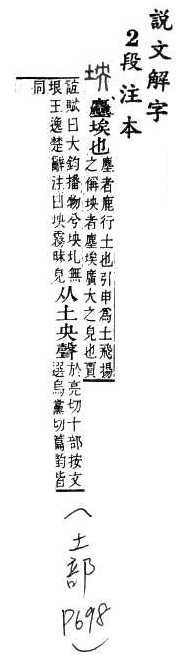 說文解字
2段注本
坱
塵埃也
塵者鹿行土也引申爲土飛揚
之偁坱者塵埃廣大之皃也賈
誼賦曰大鈞播物兮坱圠無
垠王逸楚辭注曰坱霧昧皃
从土央聲
於亮切十部按文
選烏黨切篇韵皆
同
(土部P698)